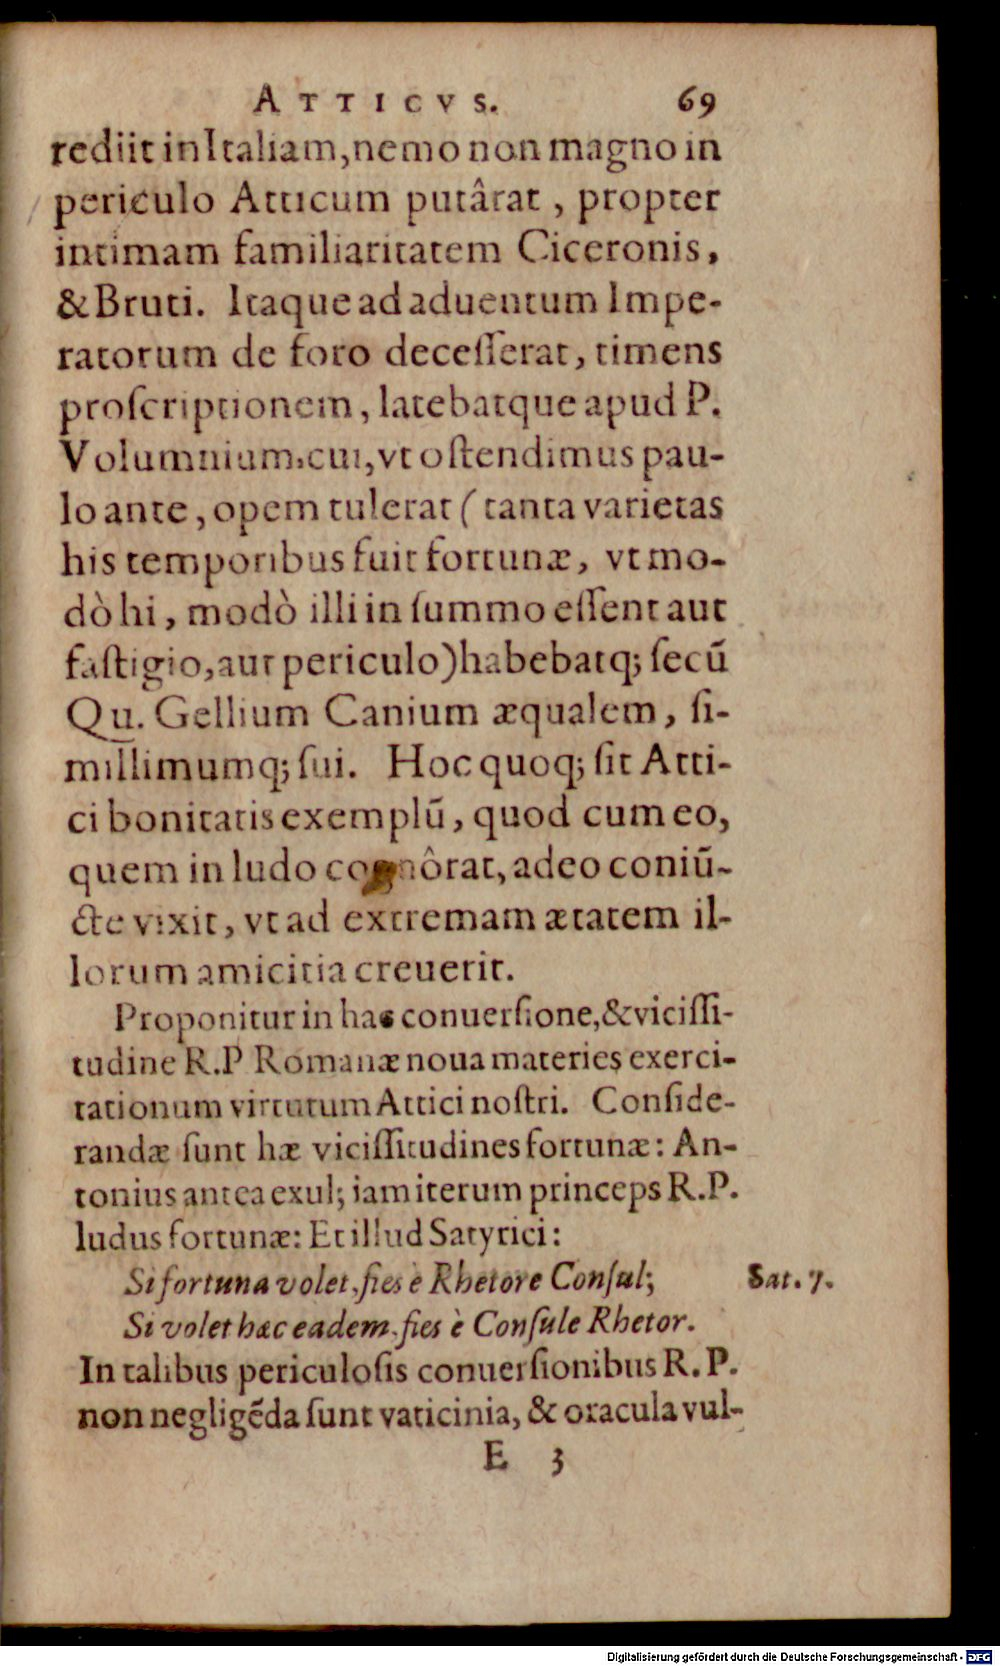 ATTICVS. 69
rediit in Italiam, nemo non magno in
periculo Atticum putârat, propter
intimam familiaritatem Ciceronis,
& Bruti. Itaque ad aduentum Impe-
ratorum de foro deceſſerat, timens
proſcriptionem, latebatque apud P.
Volumnium, cui, vt oſtendimus pau-
lo ante, opem tulerat (tanta varietas
his temporibus fuit fortunæ, vt mo-
dò hi, modò illi in ſummo eſſent aut
faſtigio, aut periculo) habebatq; ſecũ
Qu. Gellium Canium æqualem, ſi-
millimumq; ſui. Hoc quoq; ſit Atti-
ci bonitatis exemplũ, quod cum eo,
quem in ludo cognôrat, adeo coniũ-
cte vixit, vt ad extremam ætatem il-
lorum amicitia creuerit.
Proponitur in hac conuerſione, & viciſſi-
tudine R.P Romanæ noua materies exerci-
tationum virtutum Attici noſtri. Conſide-
randæ ſunt hæ viciſſitudines fortunæ: An-
tonius antea exul; iam iterum princeps R.P.
ludus fortunæ: Et illud Satyrici:
Si fortuna volet, fies è Rhetore Conſul; Sat. 7.
Si volet hæc eadem, fies è Conſule Rhetor.
In talibus periculoſis conuerſionibus R.P.
non negligẽda ſunt vaticinia, & oracula vul-
E 3
Digitalisierung gefördert durch die Deutsche Forschungsgemeinschaft - DFG